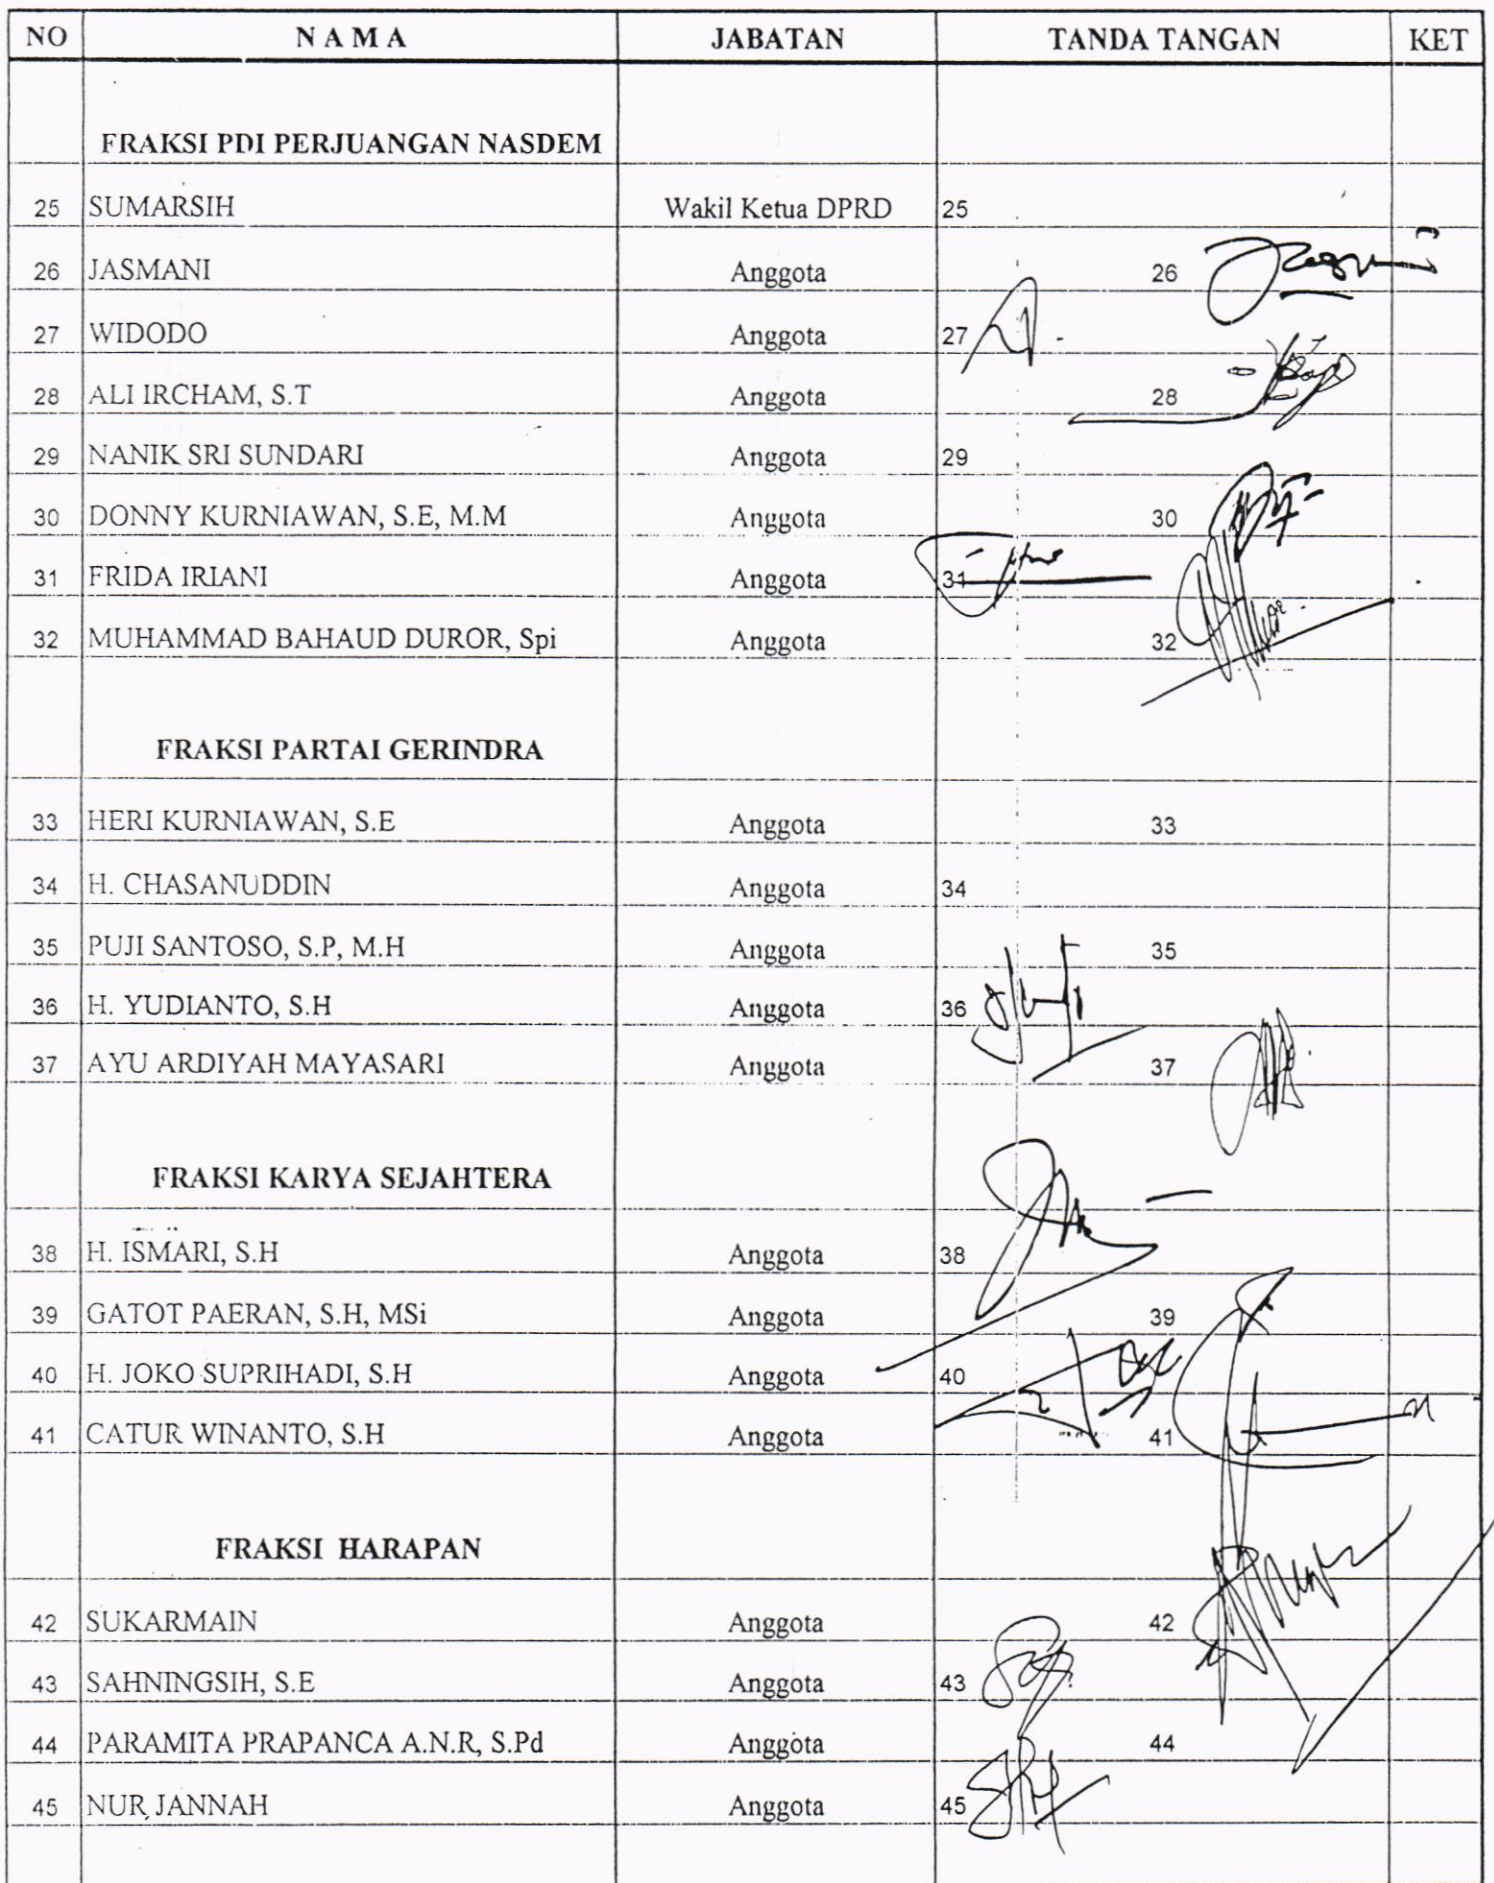 NO NAMA JABATAN TANDA TANGAN KET
FRAKSI PDI PERJUANGAN NASDEM
25 SUMARSIH Wakil Ketua DPRD 25
26 JASMANI Anggota 26
27 WIDODO Anggota 27
28 ALI IRCHAM, S.T Anggota 28
29 NANIK SRI SUNDARI Anggota 29
30 DONNY KURNIAWAN, S.E, M.M Anggota 30
31 FRIDA IRIANI Anggota 31
32 MUHAMMAD BAHAUD DUROR, Spi Anggota 32
FRAKSI PARTAI GERINDRA
33 HERI KURNIAWAN, S.E Anggota 33
34 H. CHASANUDDIN Anggota 34
35 PUJI SANTOSO, S.P, M.H Anggota 35
36 H. YUDIANTO, S.H Anggota 36
37 AYU ARDIYAH MAYASARI Anggota 37
FRAKSI KARYA SEJAHTERA
38 H. ISMARI, S.H Anggota 38
39 GATOT PAERAN, S.H, MSi Anggota 39
40 H. JOKO SUPRIHADI, S.H Anggota 40
41 CATUR WINANTO, S.H Anggota 41
FRAKSI HARAPAN
42 SUKARMAIN Anggota 42
43 SAHNINGSIH, S.E Anggota 43
44 PARAMITA PRAPANCA A.N.R, S.Pd Anggota 44
45 NUR JANNAH Anggota 45